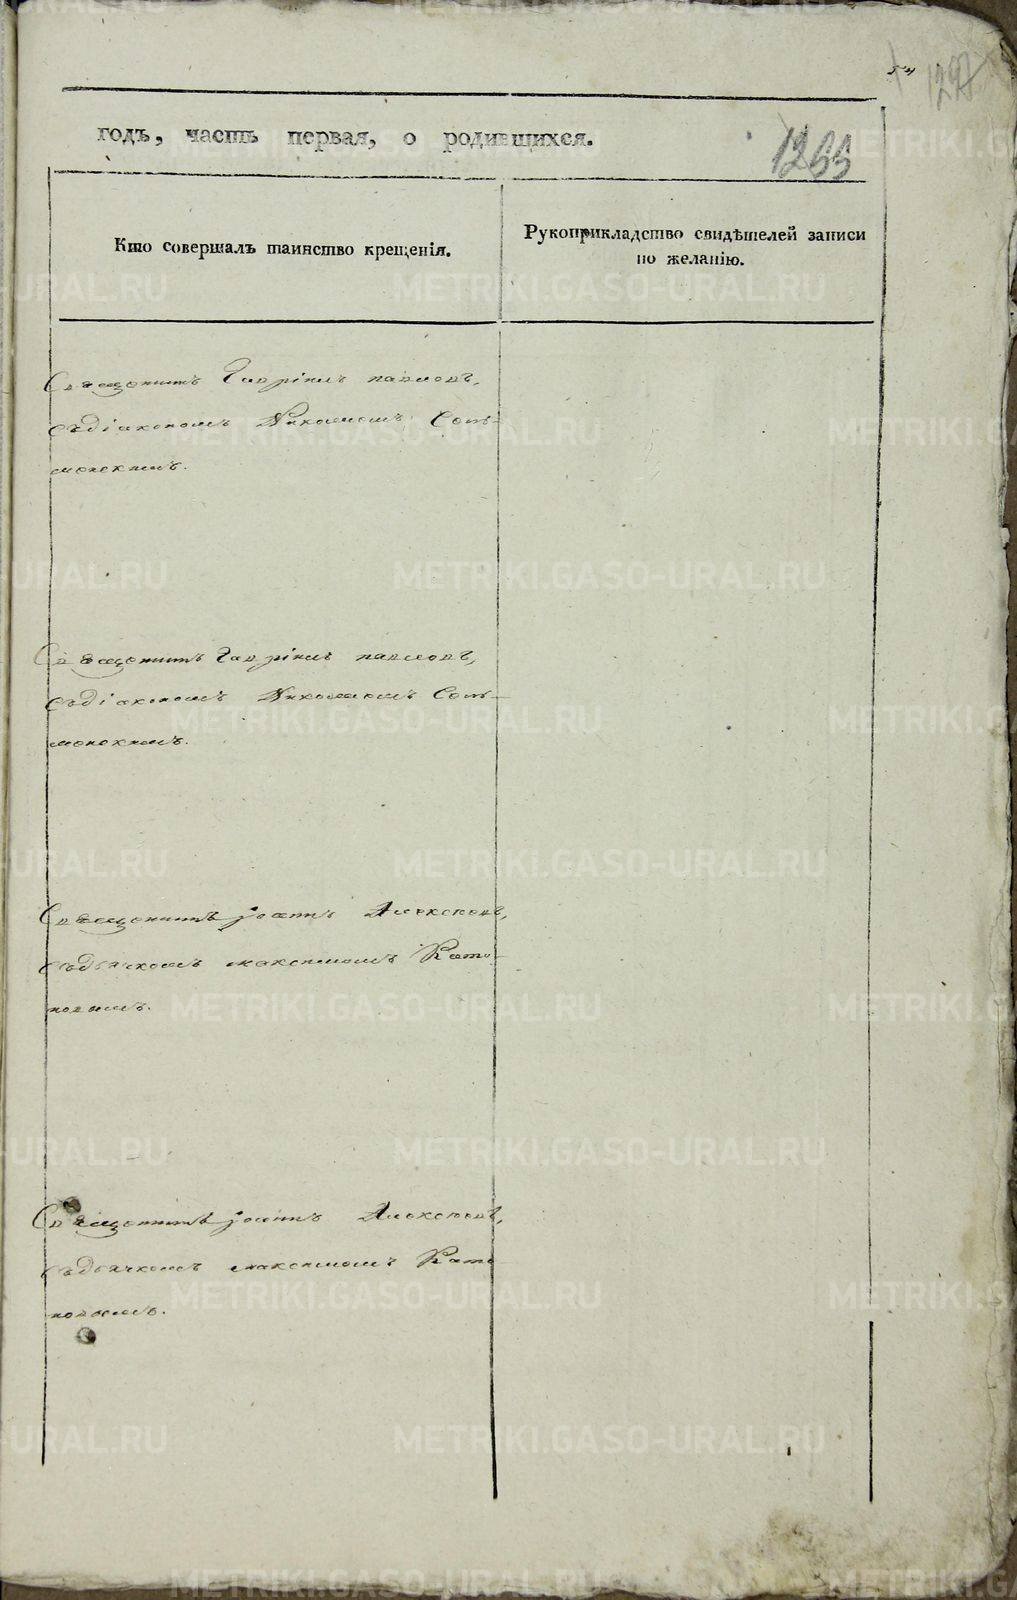 1266
годъ, часть первая, о родившихся.
Кто совершалъ таинство крещенія.
Рукоприкладство свидѣтелей записи
по желанію.
Священникъ Гавріилъ павловъ,
съдіакономъ Николаемъ
Священникъ Гавріилъ павловъ,
съдіакономъ Николаемъ
Священникъ Іоаннъ Алексѣевъ,
съдьячкомъ максимомъ
Священникъ Іоаннъ Алексѣевъ,
съдьячкомъ максимомъ
METRIKI.GASO-URAL.RU